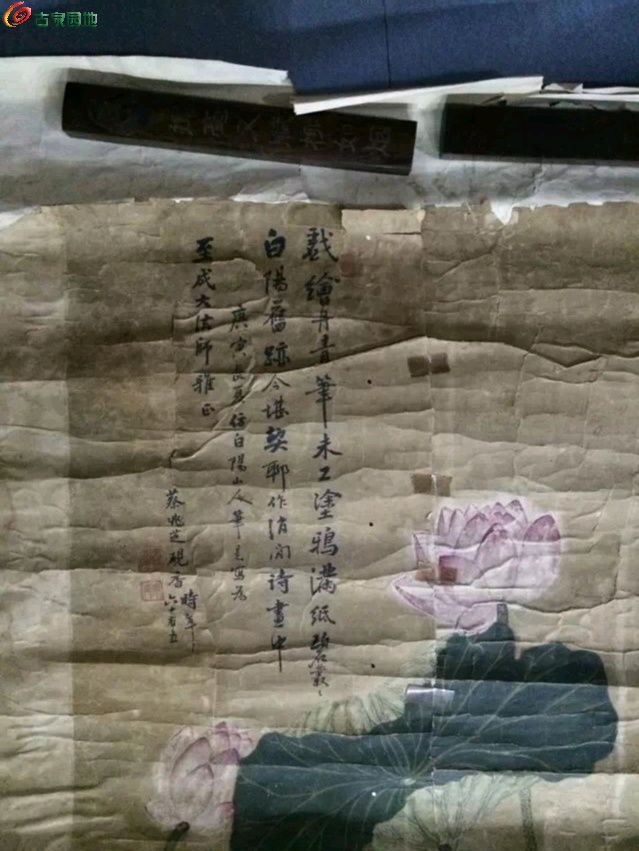 古泉园地
戲繪丹青筆未工塗鴉滿紙碧叢叢
白陽舊跡今堪契聊作消閒詩畫中
庚寅長夏仿白陽山人筆意寫為
至成大法師雅正
蔡兆 硯香時年六十有五